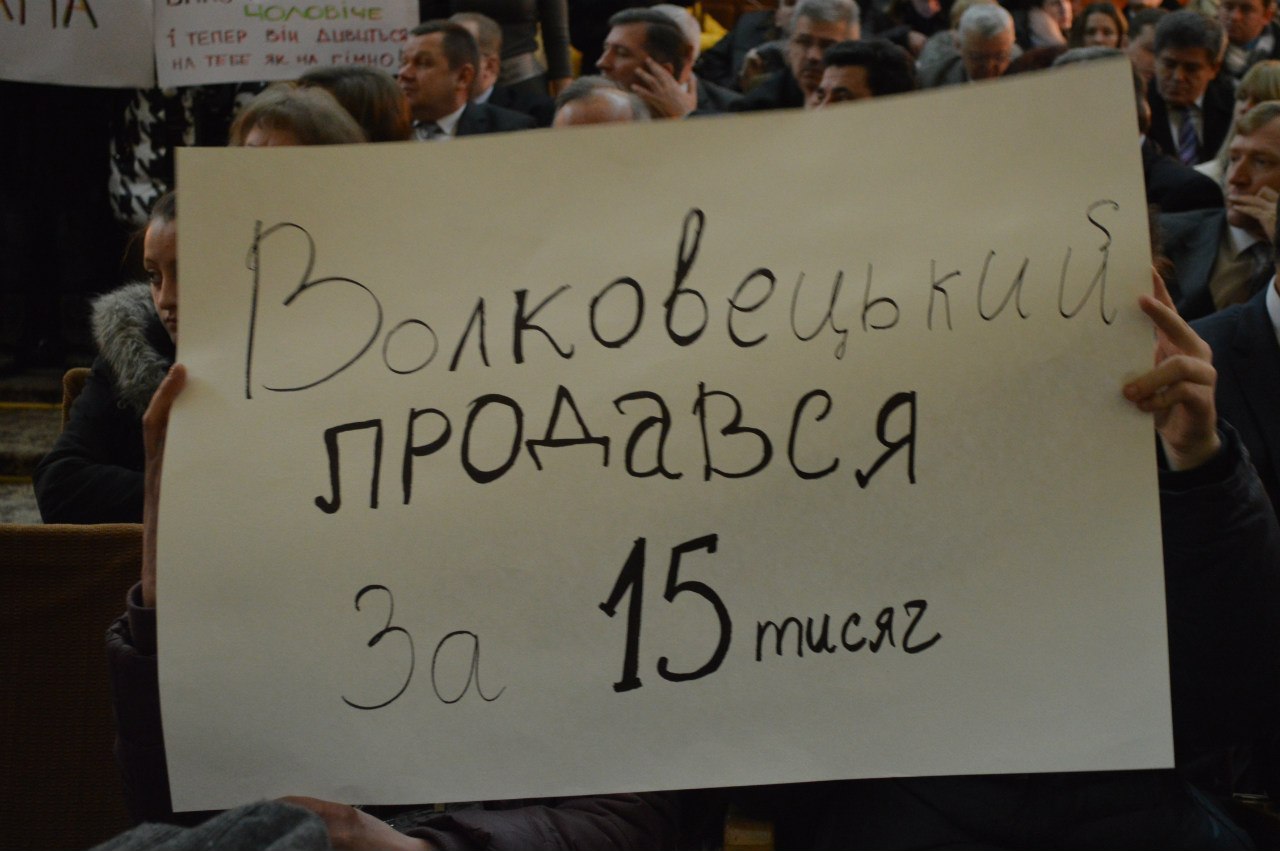 ЧОЛОВІЧЕ
І ТЕПЕР ВІН ДИВИТЬСЯ
НА ТЕБЕ ЯК НА ГІМНО!
Волковецький
продався
За 15 тисяч